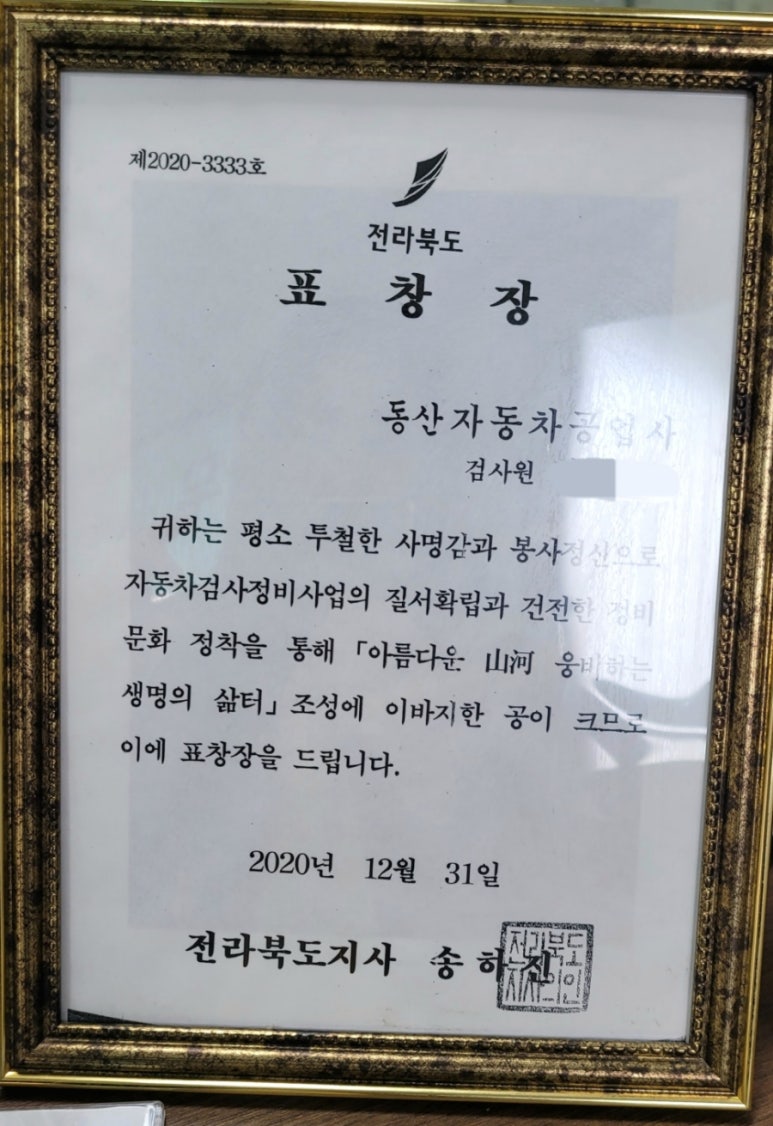 제2020-3333호
전라북도
표 창 장
동산자동차공업사
검사원
귀하는 평소 투철한 사명감과 봉사정신으로
자동차검사정비사업의 질서확립과 건전한 정비
문화 정착을 통해 「아름다운 山河 웅비하는
생명의 삶터」 조성에 이바지한 공이 크므로
이에 표창장을 드립니다.
2020년 12월 31일
전라북도지사 송하진
전라북도
지사의인